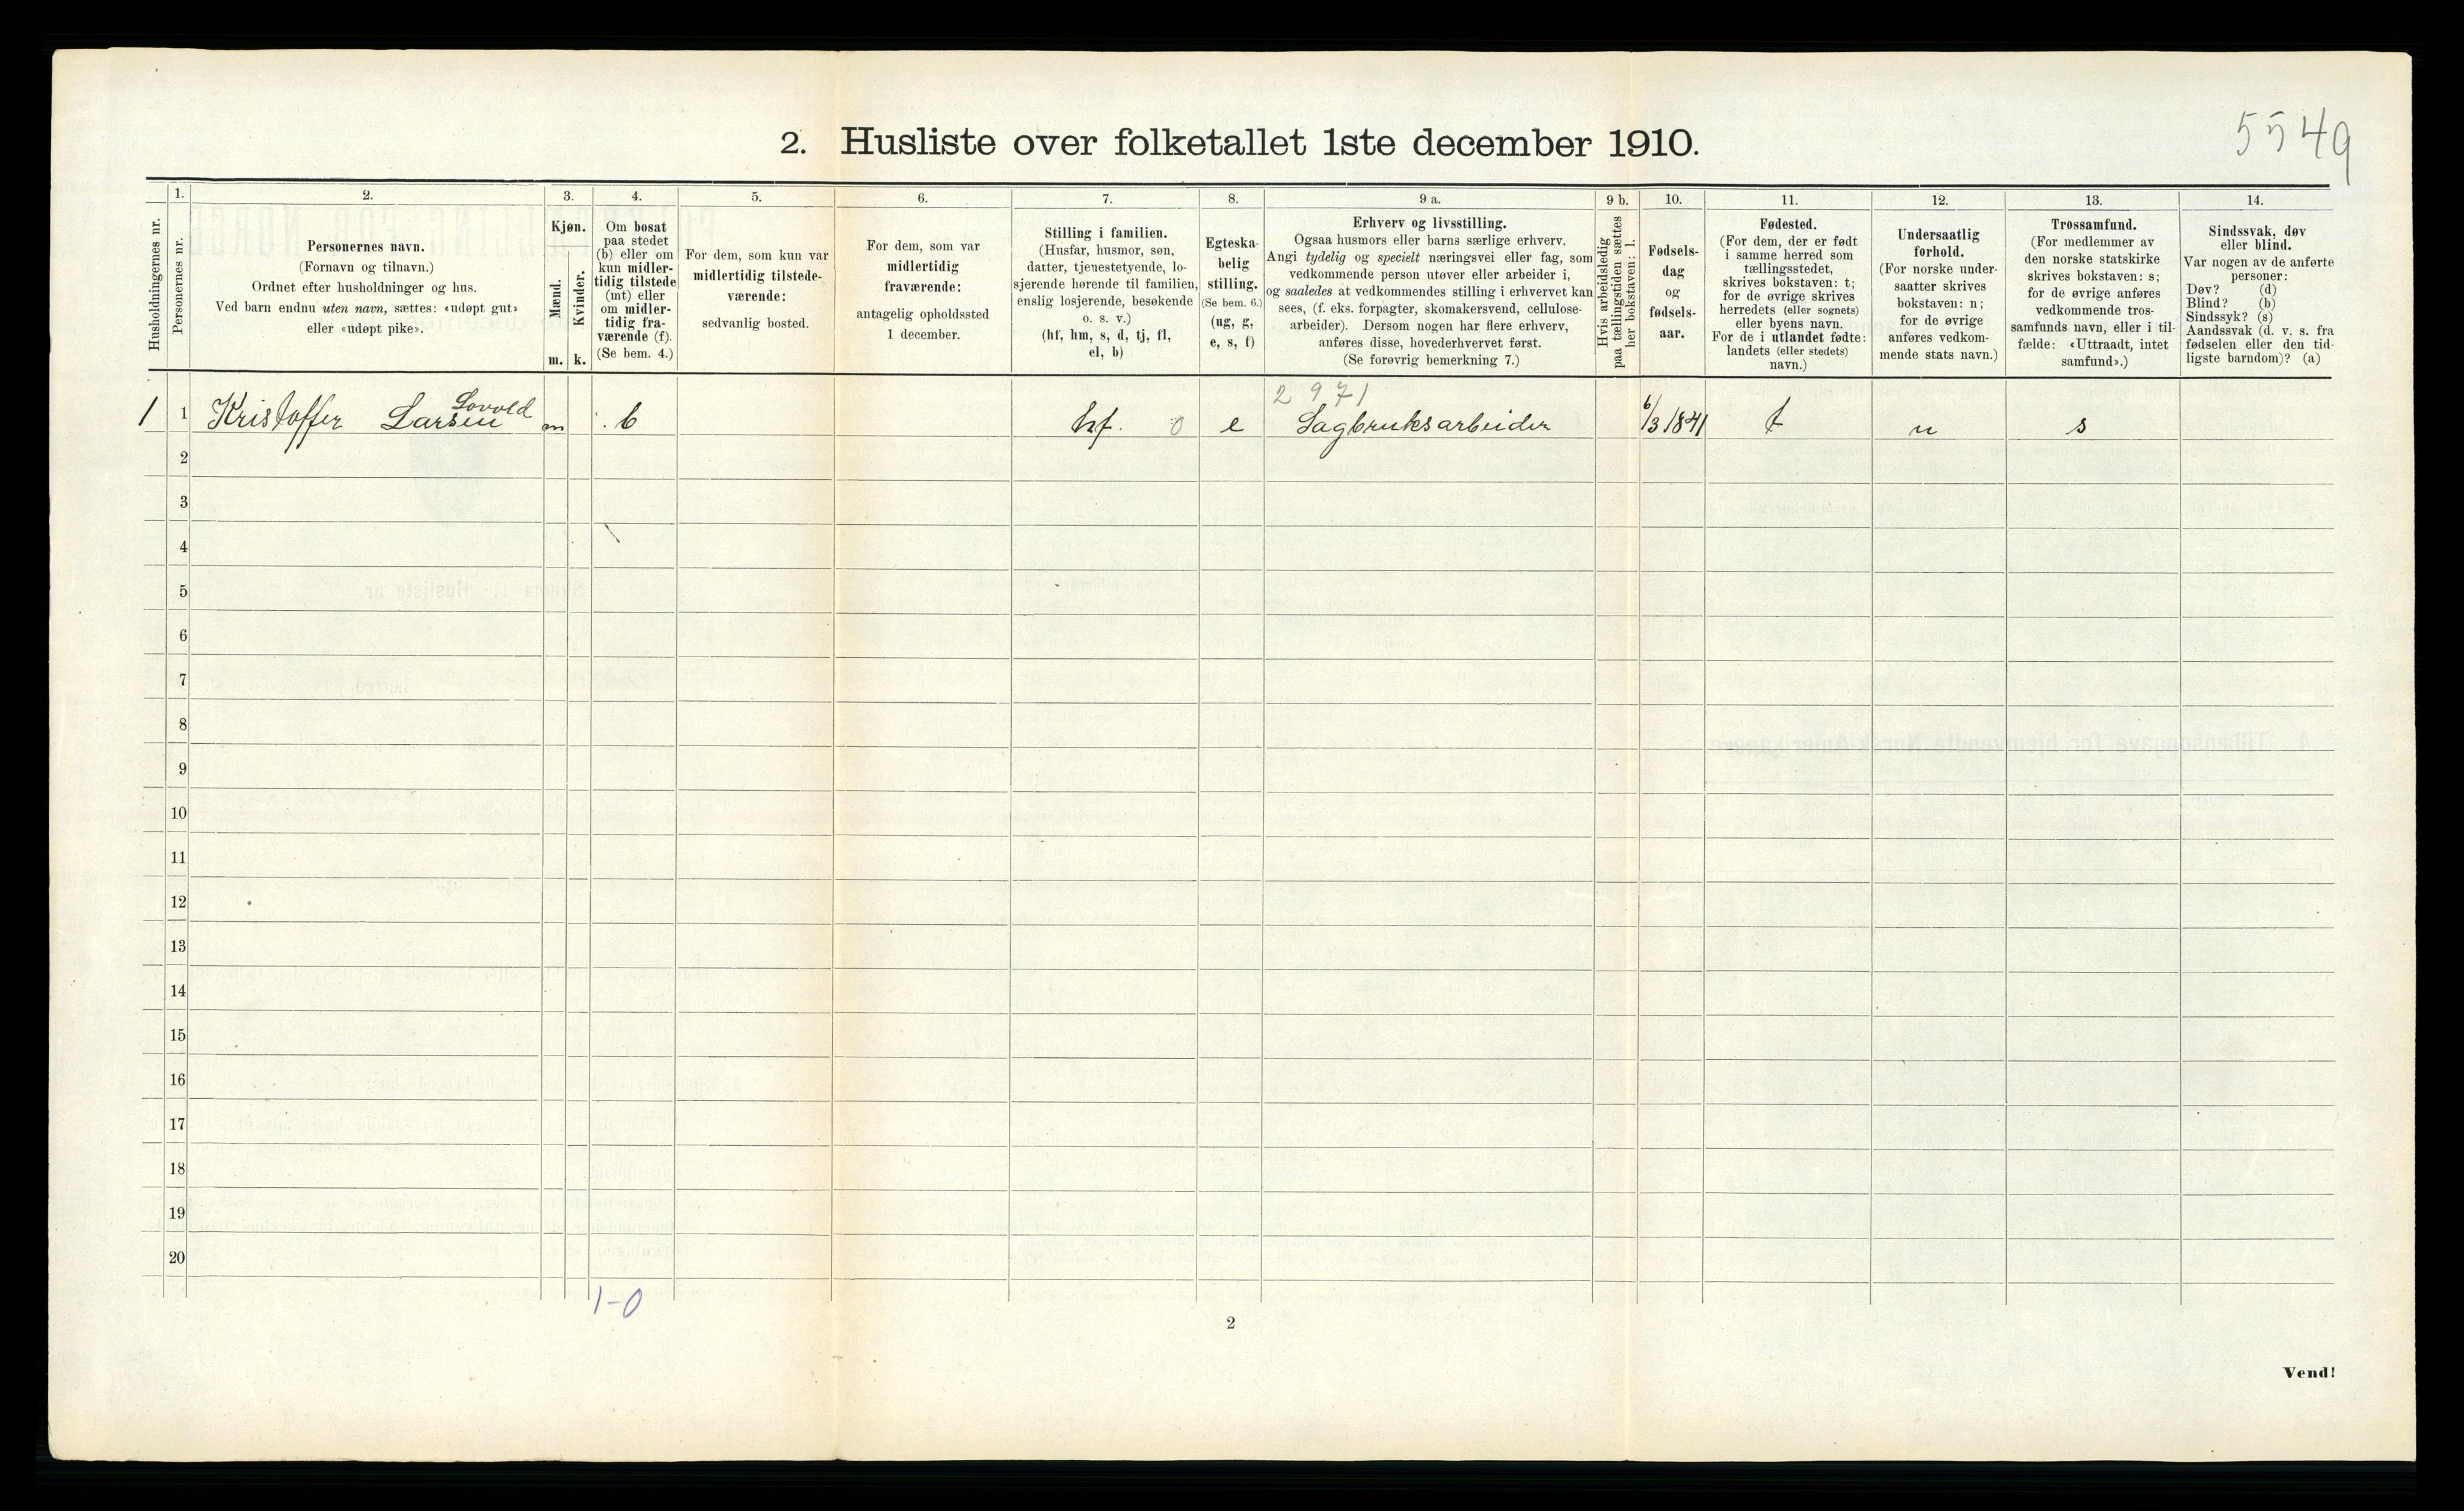 5549
2. Husliste over folketallet 1ste december 1910.
Husholdningernes nr.
1.
Personernes nr.
2.
Personernes navn.
(Fornavn og tilnavn.)
Ordnet efter husholdninger og hus.
Ved barn endnu uten navn, sættes: «udøpt gut»
eller «udøpt pike».
3.
Kjøn.
Mænd.
Kvinder.
m. k.
4.
Om bosat
paa stedet
(b) eller om
kun midler-
tidig tilstede
(mt) eller
om midler-
tidig fra-
værende (f).
(Se bem. 4.)
5.
For dem, som kun var
midlertidig tilstede-
værende:
sedvanlig bosted.
6.
For dem, som var
midlertidig
fraværende:
antagelig opholdssted
1 december.
7.
Stilling i familien.
(Husfar, husmor, søn,
datter, tjenestetyende, lo-
sjerende hørende til familien,
enslig losjerende, besøkende
o. s. v.)
(hf, hm, s, d, tj, fl,
el, b)
8.
Egteska-
belig
stilling.
(Se bem. 6.)
(ug, g,
e, s, f)
9 a.
Erhverv og livsstilling.
Ogsaa husmors eller barns særlige erhverv.
Angi tydelig og specielt næringsvei eller fag, som
vedkommende person utøver eller arbeider i,
og saaledes at vedkommendes stilling i erhvervet kan
sees, (f. eks. forpagter, skomakersvend, cellulose-
arbeider). Dersom nogen har flere erhverv,
anføres disse, hovederhvervet først.
(Se forøvrig bemerkning 7.)
9 b.
Hvis arbeidsledig
paa tællingstiden sættes
her bokstaven: l.
10.
Fødsels-
dag
og
fødsels-
aar.
11.
Fødested.
(For dem, der er født
i samme herred som
tællingsstedet,
skrives bokstaven: t;
for de øvrige skrives
herredets (eller sognets)
eller byens navn.
For de i utlandet fødte:
landets (eller stedets)
navn.)
12.
Undersaatlig
forhold.
(For norske under-
saatter skrives
bokstaven: n;
for de øvrige
anføres vedkom-
mende stats navn.)
13.
Trossamfund.
(For medlemmer av
den norske statskirke
skrives bokstaven: s;
for de øvrige anføres
vedkommende tros-
samfunds navn, eller i til-
fælde: «Uttraadt, intet
samfund».)
14.
Sindssvak, døv
eller blind.
Var nogen av de anførte
personer:
Døv? (d)
Blind? (b)
Sindssyk? (s)
Aandssvak (d. v. s. fra
fødselen eller den tid-
ligste barndom)? (a)
2 9 71
Lovold
1 1 Kristoffer Larsen m b hf. 0 e Sagbruksarbeider 6/3 1841 t n s
2
3
4
5
6
7
8
9
10
11
12
13
14
15
16
17
18
19
20
1-0
2
Vend!